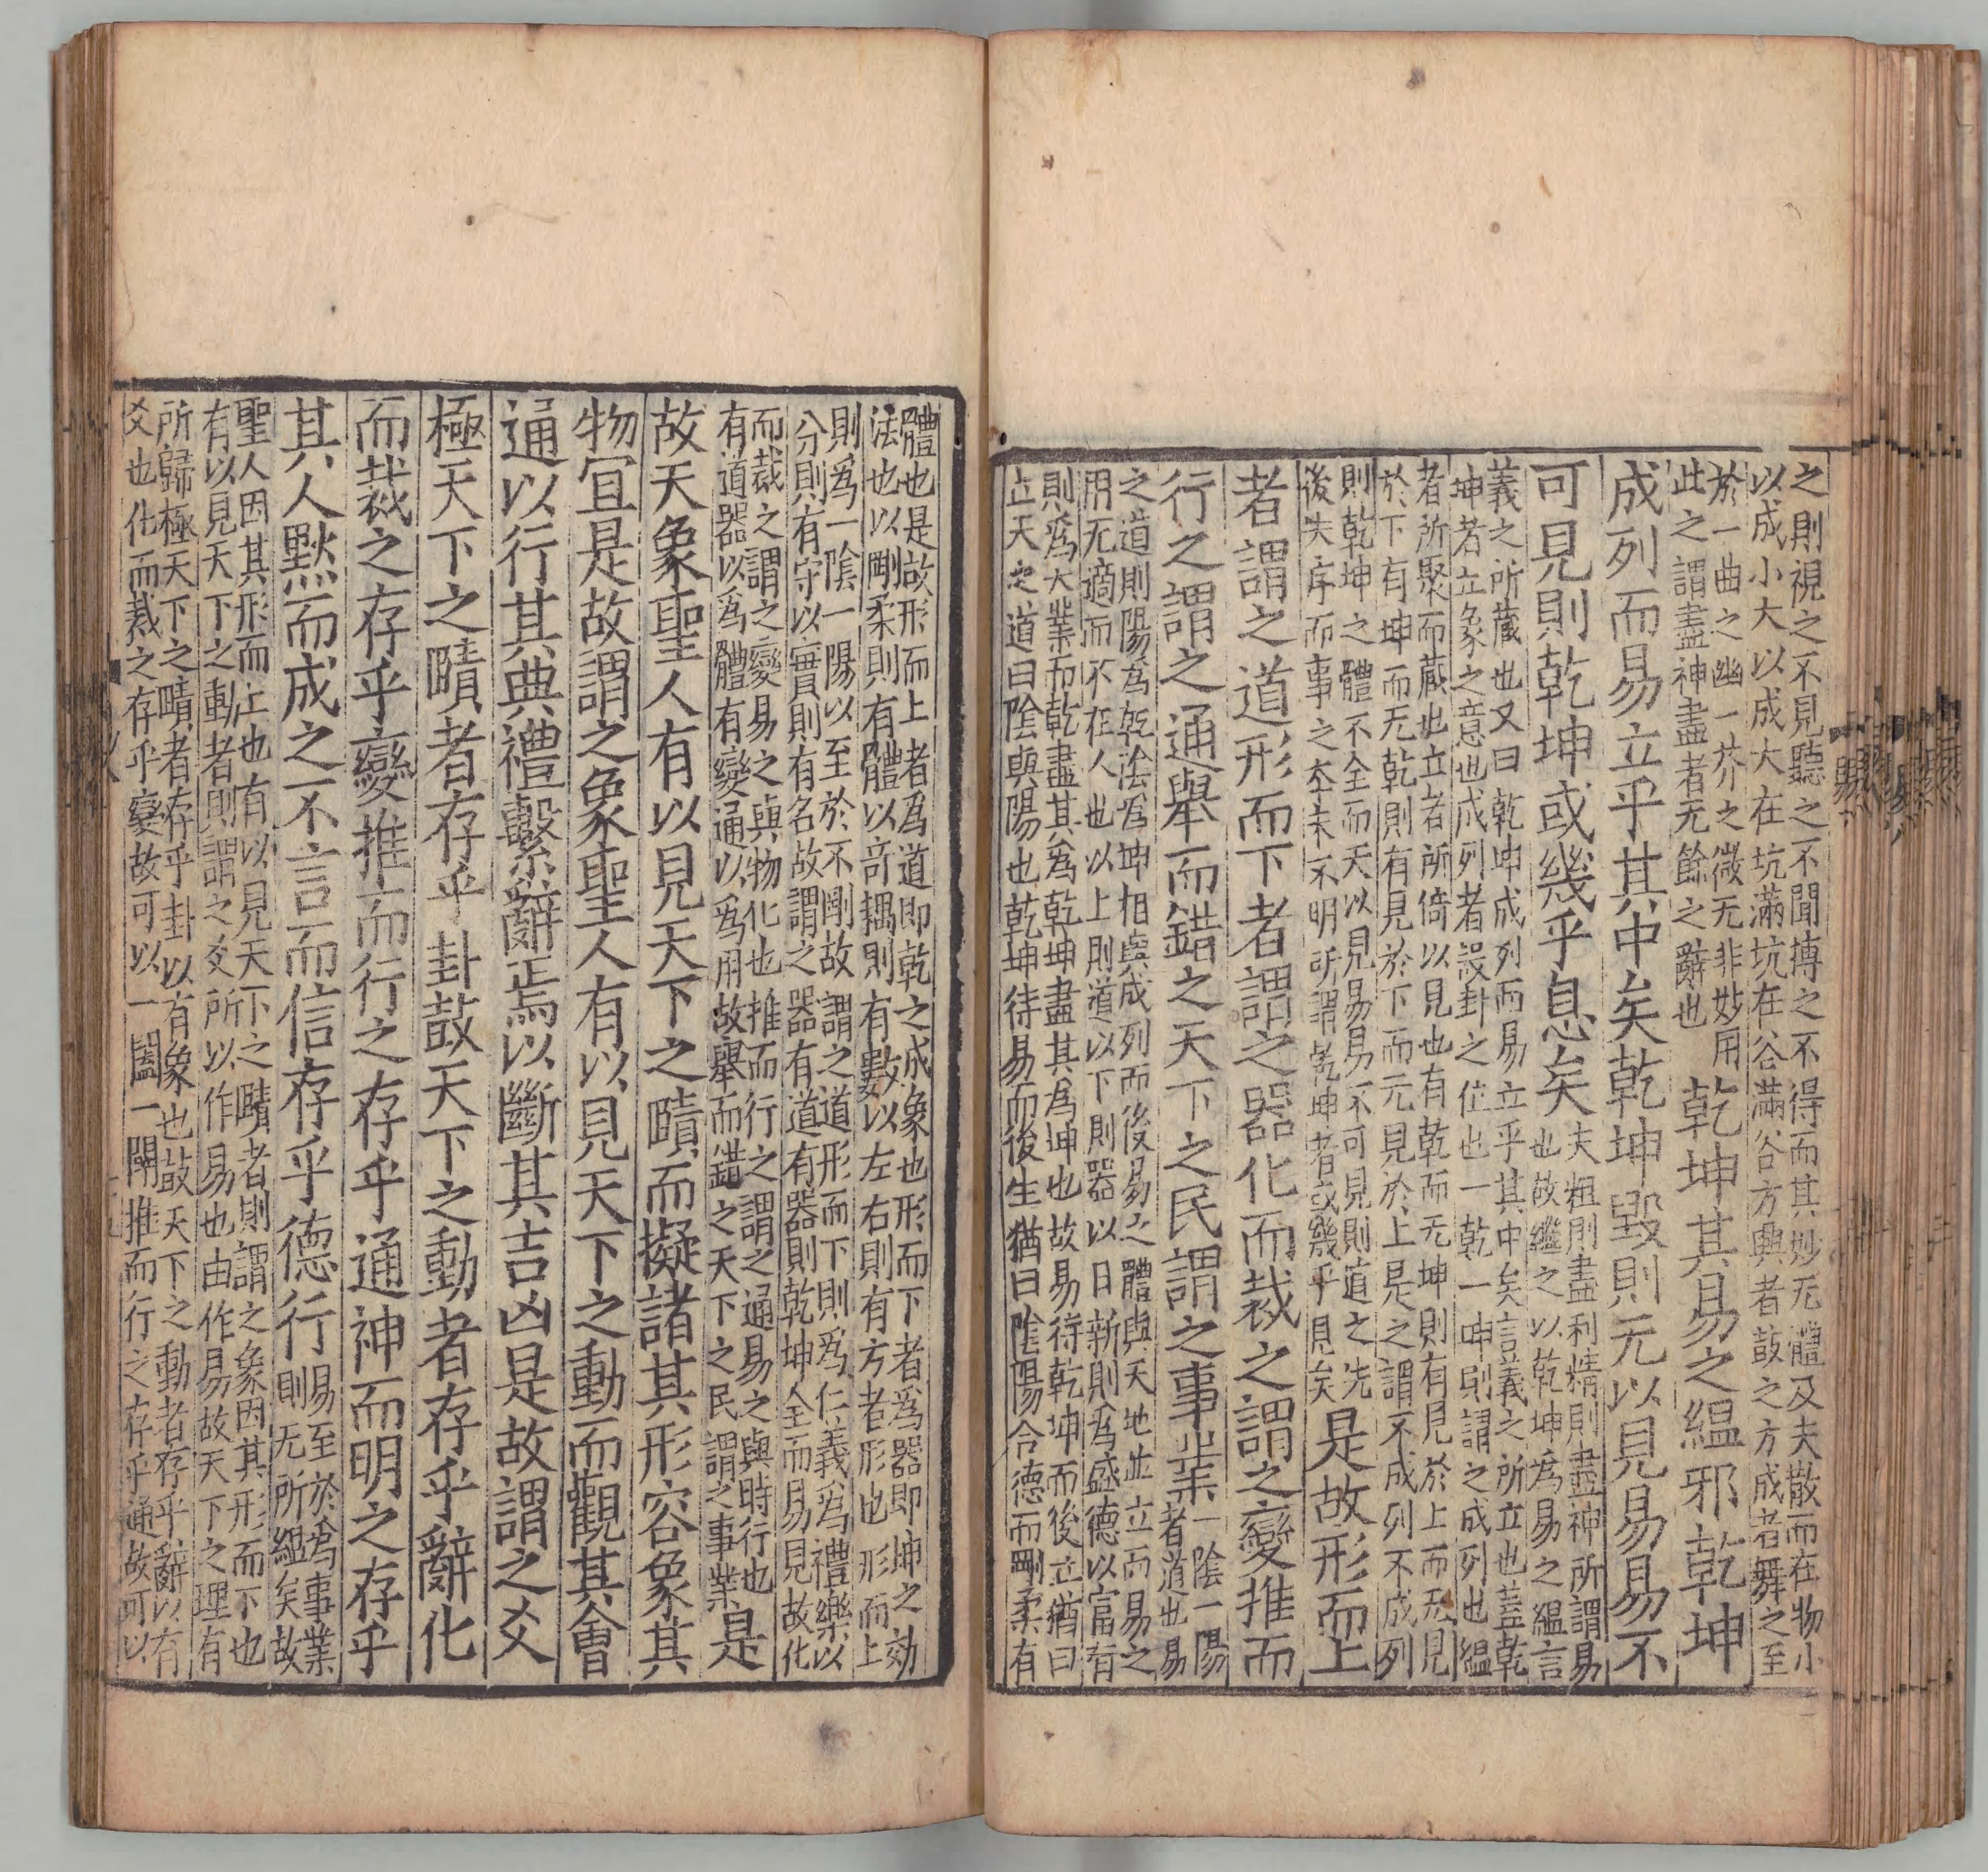 之則視之不見聽之不聞搏之不得而其妙无體及夫散而在物小
以成小大以成大在坑滿坑在谷滿谷方興者鼓之方成者舞之至
於一曲之幽一芥之微无非妙用
此之謂盡神盡者无餘之辭也
乾坤其易之緼邪乾坤
成列而易立乎其中矣乾坤毀則无以見易易不
可見則乾坤或幾乎息矣
夫粗則盡利精則盡神所謂易
也故繼之以乾坤爲易之緼言
義之所藏也又曰乾坤成列而易立乎其中矣言義之所立也蓋乾
坤者立象之意也成列者設卦之位也一乾一坤則謂之成列也緼
者所聚而藏也立者所倚以見也有乾而无坤則有見於上而无見
於下有坤而无乾則有見於下而无見於上是之謂不成列不成列
則乾坤之體不全而天以見易易不可見則道之先
後失序而事之夲末不明所謂乾坤者或幾乎見矣
是故形而上
者謂之道形而下者謂之器化而裁之謂之變推而
行之謂之通舉而錯之天下之民謂之事業
一陰一陽
者道也易
之道則陽爲乾法爲坤相與成列而後易之體與天地並立而易之
用无適而不在人也以上則道以下則器以日新則爲盛德以富有
則爲大業而乾盡其爲乾坤盡其爲坤也故易待乾坤而後立猶曰
立天之道曰陰與陽也乾坤待易而後生猶曰陰陽合德而剛柔有
體也是故形而上者爲道即乾之成象也形而下者爲器即坤之効
法也以剛柔則有體以竒耦則有數以左右則有方者形也形而上
則爲一陰一陽以至於不剛故謂之道形而下則爲仁義爲禮樂以
分則有守以實則有名故謂之器有道有器則乾坤全而易見故化
而裁之謂之變易之與物化也推而行之謂之通易之與時行也
有道器以爲體有變通以爲用故舉而錯之天下之民謂之事業
是
故夫象聖人有以見天下之賾而擬諸其形容象其
物宜是故謂之象聖人有以見天下之動而觀其會
通以行其典禮繫辭焉以斷其吉凶是故謂之爻
極天下之賾者存乎卦鼓天下之動者存乎辭化
而裁之存乎變推而行之存乎通神而明之存乎
其人默而成之不言而信存乎德行
易至於爲事業
則无所緼矣故
聖人因其形而上也有以見天下之賾者則謂之象因其形而下也
有以見天下之動者則謂之爻所以作易也由作易故天下之理有
所歸極天下之賾者存乎卦以有象也鼓天下之動者存乎辭以有
爻也化而裁之存乎變故可以一闔一闢推而行之存乎通故可以